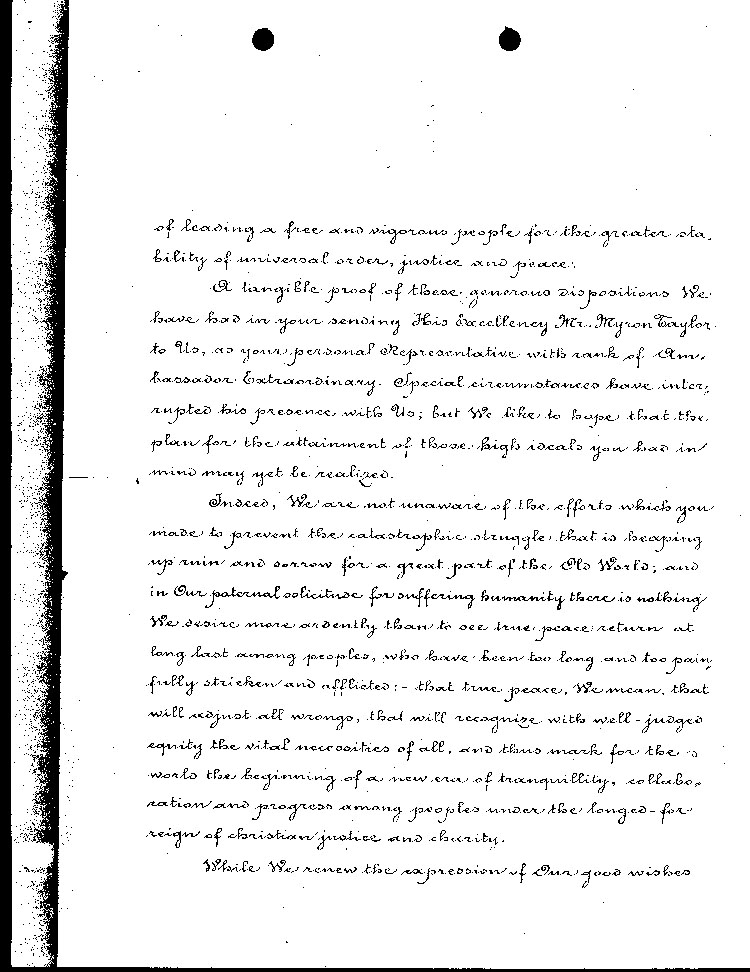 of leading a free and vigorous people for the greater sta-
bility of universal order, justice and peace.
A tangible proof of these generous dispositions We
have had in your sending His Excellency Mr. Myron Taylor
to Us, as your personal Representative with rank of Am-
bassador Extraordinary. Special circumstances have inter-
rupted his presence with Us; but We like to hope that the
plan for the attainment of those high ideals you had in
mind may yet be realized.
Indeed, We are not unaware of the efforts which you
made to prevent the catastrophic struggle that is heaping
up ruin and sorrow for a great part of the Old World; and
in Our paternal solicitude for suffering humanity there is nothing
We desire more ardently than to see true peace return at
long last among peoples, who have been too long and too pain-
fully stricken and afflicted:- that true peace, We mean, that
will adjust all wrongs, that will recognize with well-judged
equity the vital necessities of all, and thus mark for the
world the beginning of a new era of tranquillity, collabo-
ration and progress among peoples under the longed-for
reign of christian justice and charity.
While We renew the expression of Our good wishes